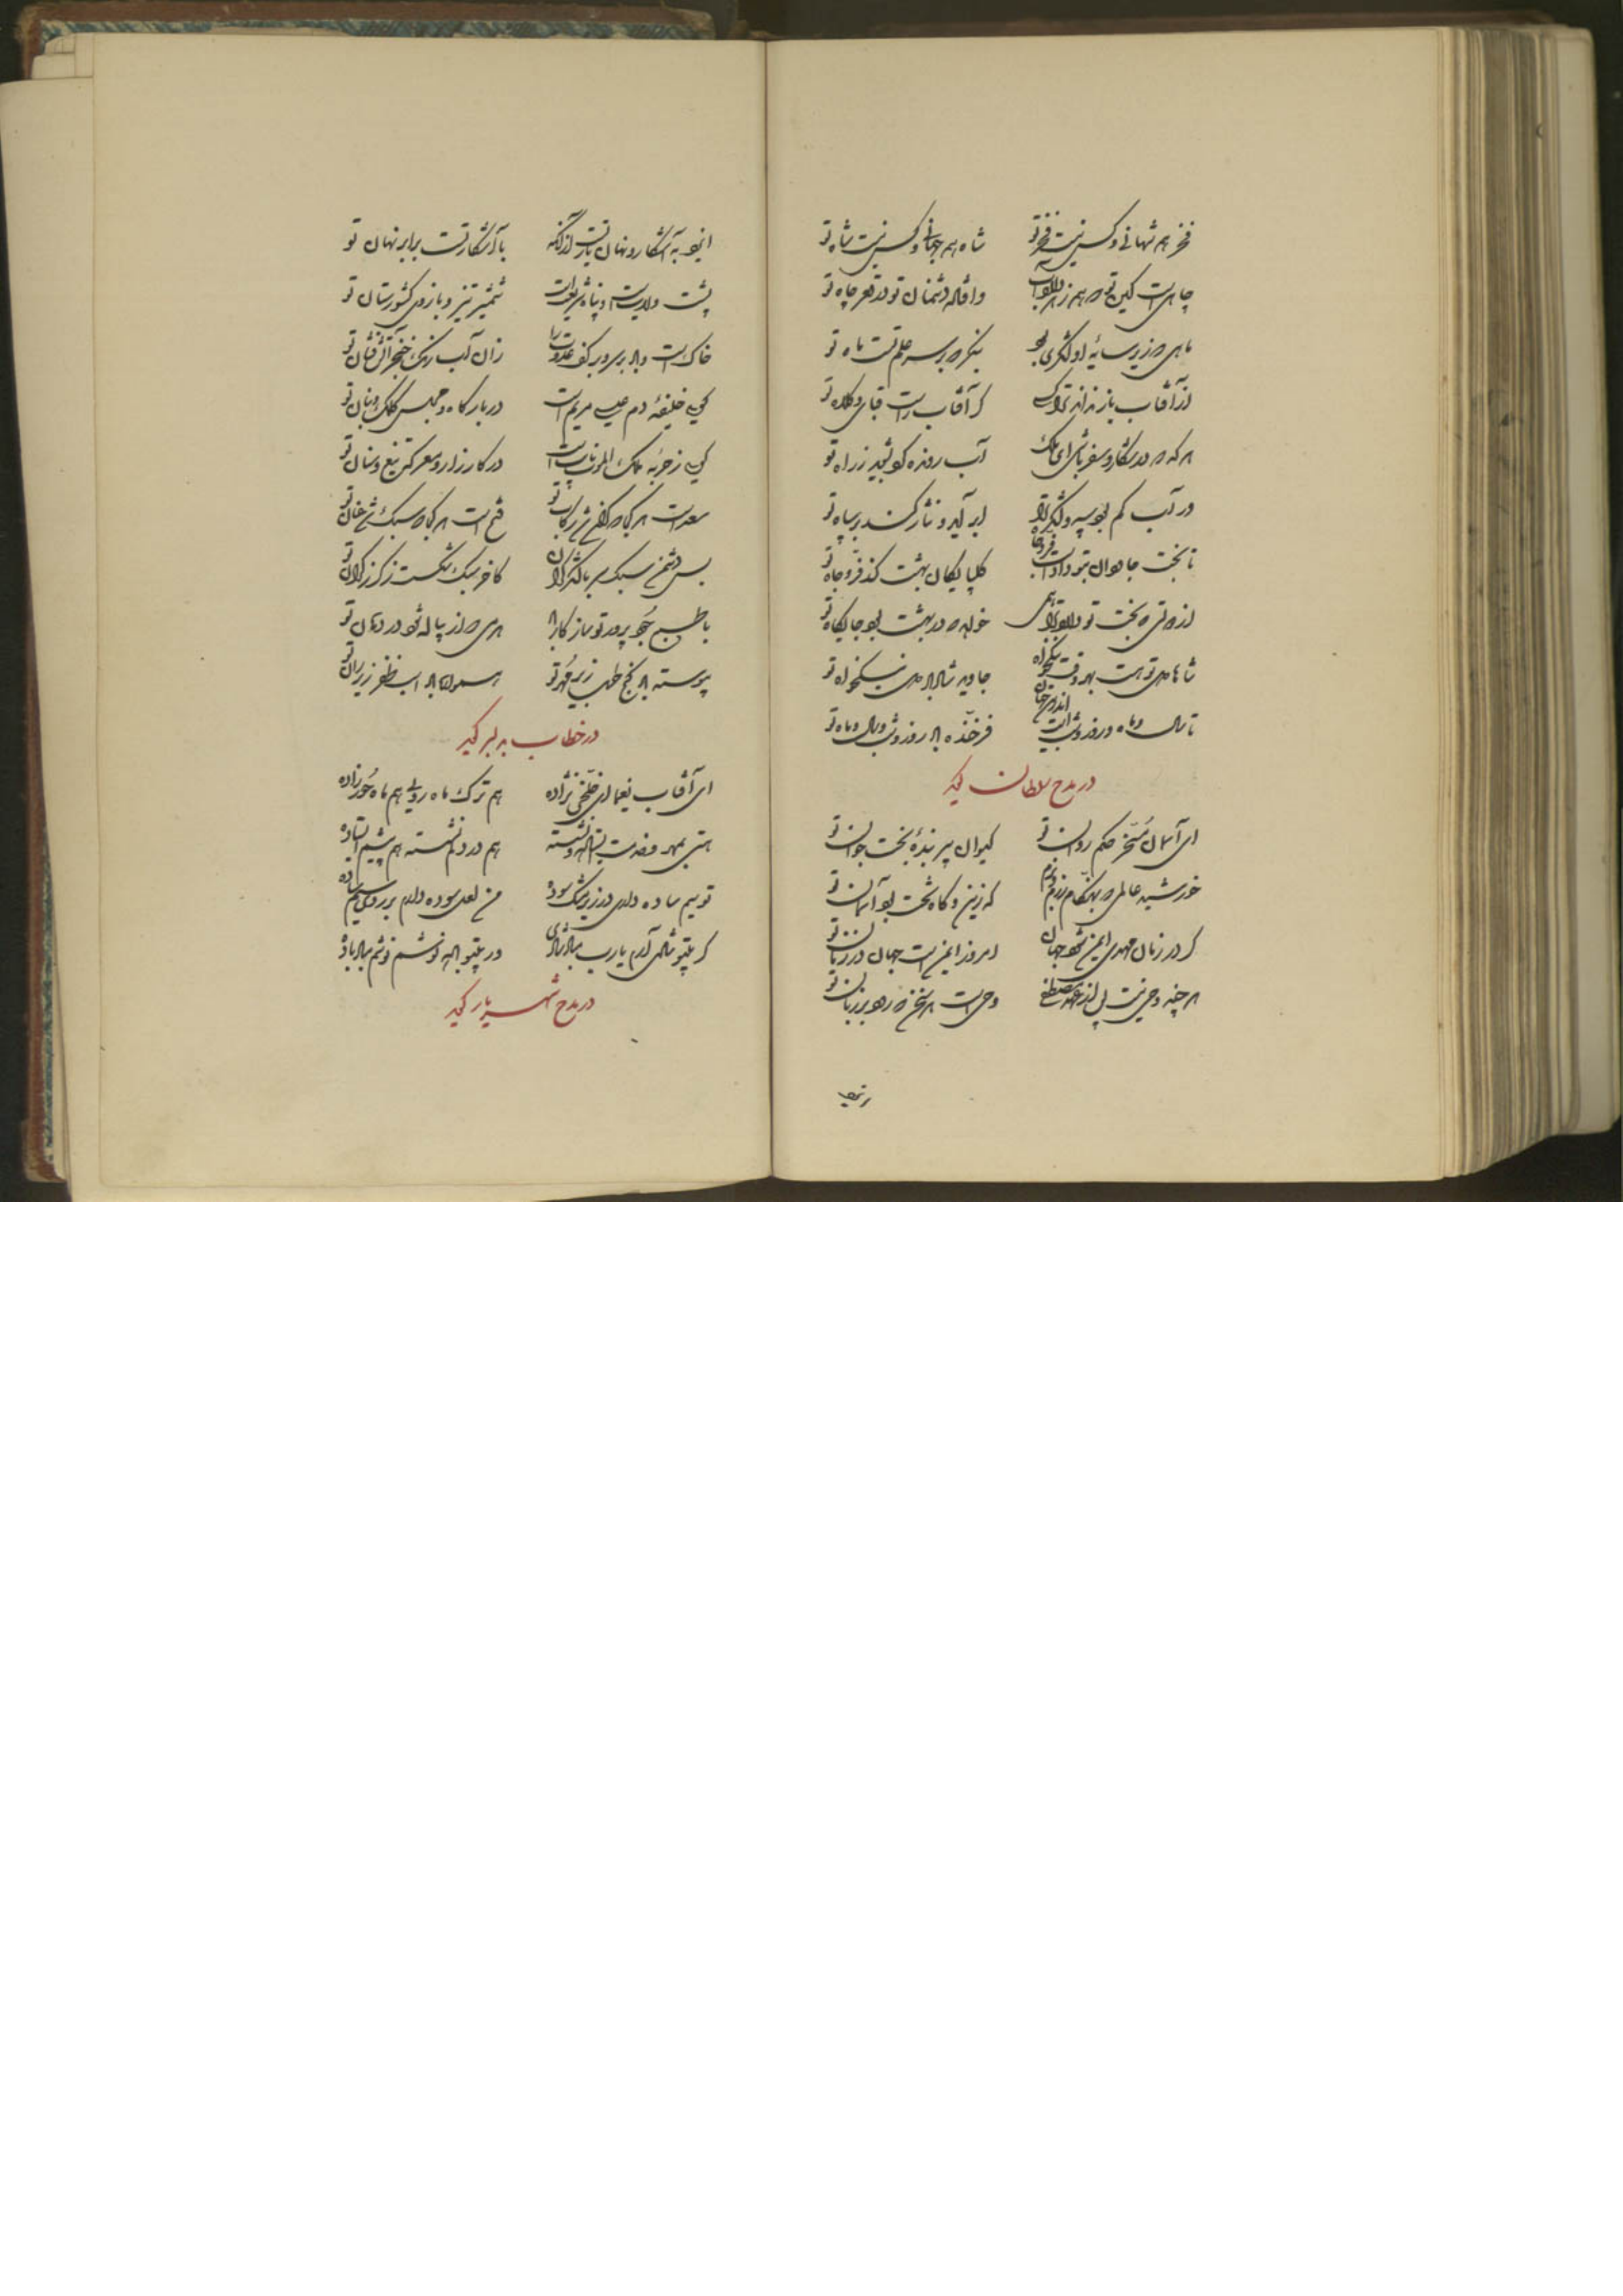 فخر همه شهانی و کس نیست فخر تو شاه همه جهانی و کس نیست شاه تو
چاهی است کین تو که همه زهر دارد آب وافتاده دشمنان تو در قعر چاه تو
ماهی که زیر سایه او لشکری بود بنگر که بر سر علم تست ماه تو
از آفتاب باز نداند ترا کسی کز آفتاب راست قبای و کلاه تو
هر که که در شکار و سفر باشی ای ملک آب روزه کو شوید ز راه تو
در آب کم بود سپه و لشکر ترا ابر آید و نثار کند بر سپاه تو
تا بخت جاودان بتو دادست فر و جاه گلپایگان بهشت کند فر و جاه تو
خواهد که در بهشت بود جایگاه تو
شاها هدی تو هست بهر وقت نیکخواه جاوید شاد باد هدی نیکخواه تو
تا سال و ماه و روز و شب است اندرین جهان فرخنده باد روز و شب و سال و ماه تو
در مدح سلطان گوید
ای آسمان مسخر حکم روان تو کیوان پیر بنده بخت جوان تو
خورشید عالمی که بهنگام رزم و بزم که زین و گاه تخت بود آسمان تو
گر در زمان مهدی ایمن شود جهان امروز ایمن است جهان در زمان تو
هر چند وحی نیست پس از عهد مصطفی وحی است هر سخن که رود بر زبان تو
ایزد به آشکار و نهان یار تست از آنکه با آشکار تست برابر نهان تو
پشت ولایت است و پناه شریعت است شمشیر تیز و بازوی کشورستان تو
خاک است و باد بر سر و بر کف عدوت را زان آب رنگ خنجر آتش فشان تو
گویی خلیفه دم عیسی مریم است در بارگاه و مجلس کلک و بنان تو
گویی ز حربه ملک الموت نایب است در کارزار و معرکه تیغ و سنان تو
سعد است هر کجا که گران شد رکاب تو فتح است هر کجا که سبک شد عنان تو
بس دشمن سبک سر با لشکر گران کاخر سبک شکست ز گرز گران تو
می که از پیاله شود در دهان تو
پیوسته باد گنج طرب زیر مهر تو همواره باد اسب ظفر زیر ران تو
در خطاب به دلبر گوید
ای آفتاب یغما ای خلخی نژاده هم ترک ماه رویی هم ماه حور زاده
هستی بمهر و خدمت بنشسته هم در دلم نشسته هم پیشم ایستاده
تو سیم ساده داری در زیر مشک سوده من لعل سوده دارم بر روی سیم ساده
گر بیتو شادی آرم یارب مباد شادی ور بیتو باده نوشم نوشم مباد باده
در مدح شهریار گوید
ایزد